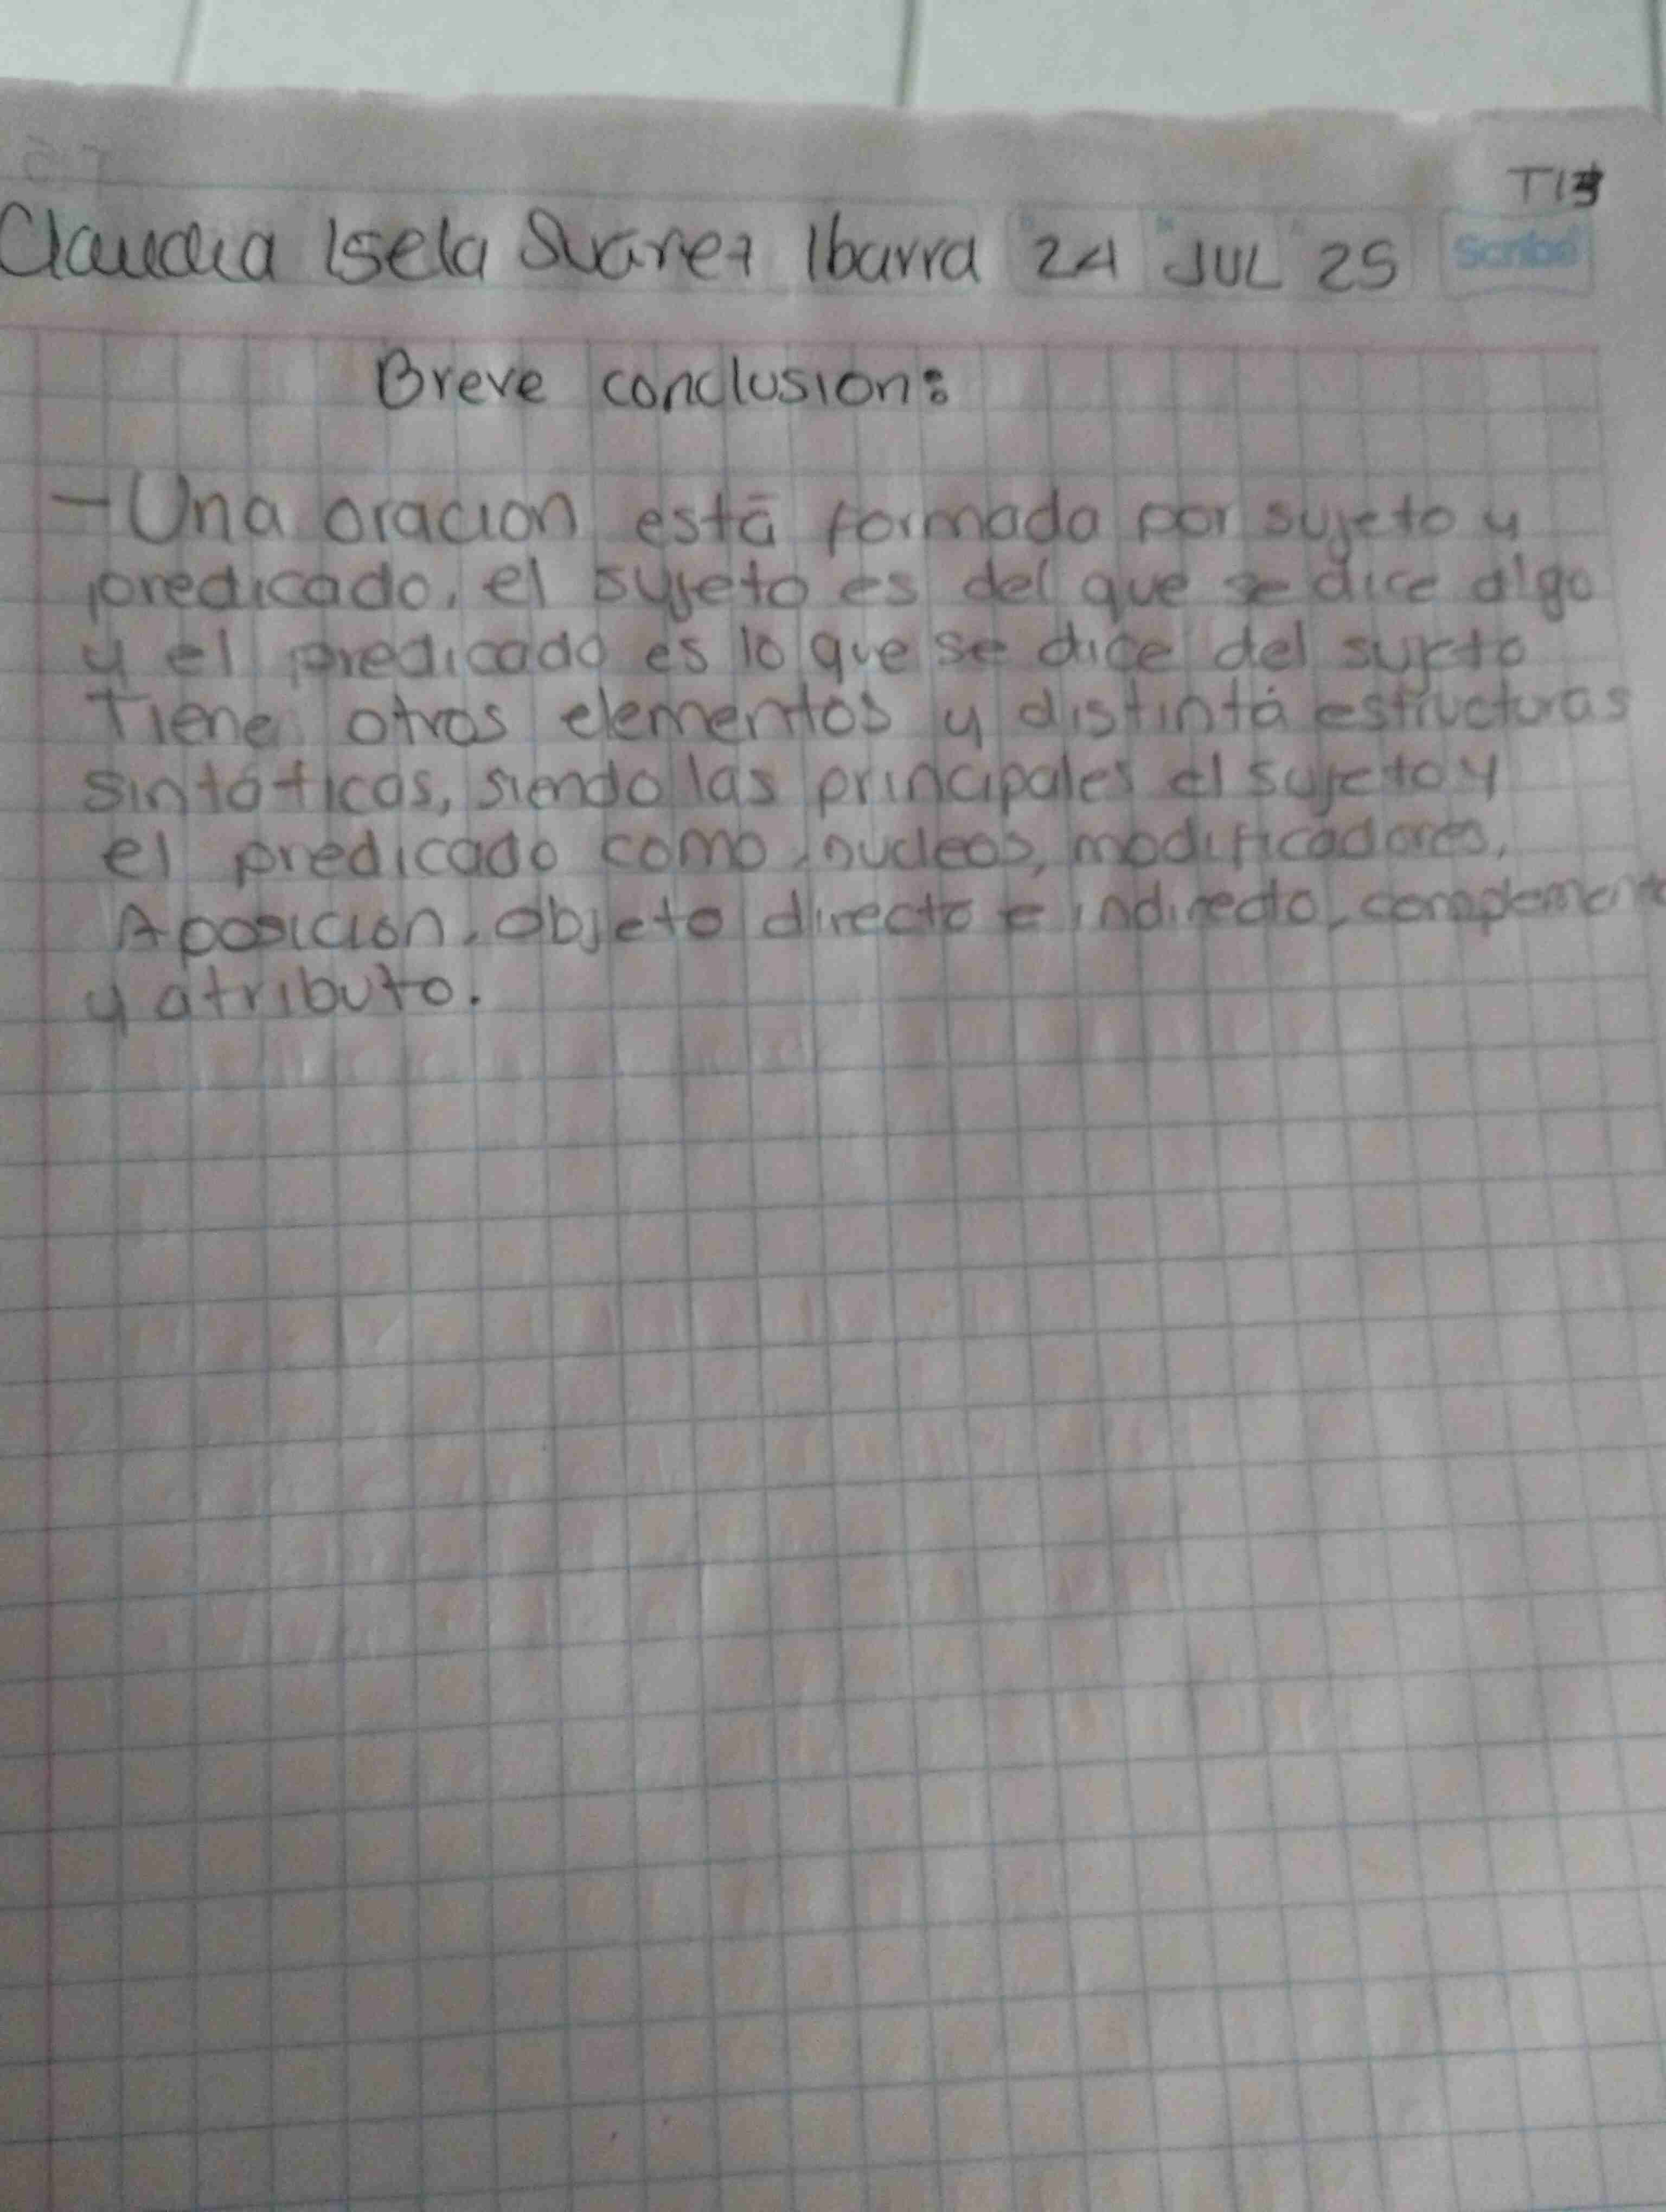 T13
Claudia Isela Suarez Ibarra 24 JUL 25 Scribe
Breve conclusion:
- Una oracion está formada por sujeto y
predicado, el sujeto es del que se dice algo
y el predicado es lo que se dice del sujeto
Tiene otros elementos y distinta estructuras
sintáticas, siendo las principales el sujeto y
el predicado como nucleos, modificadores,
Aposicion, objeto directo e indirecto, complemento
y atributo.